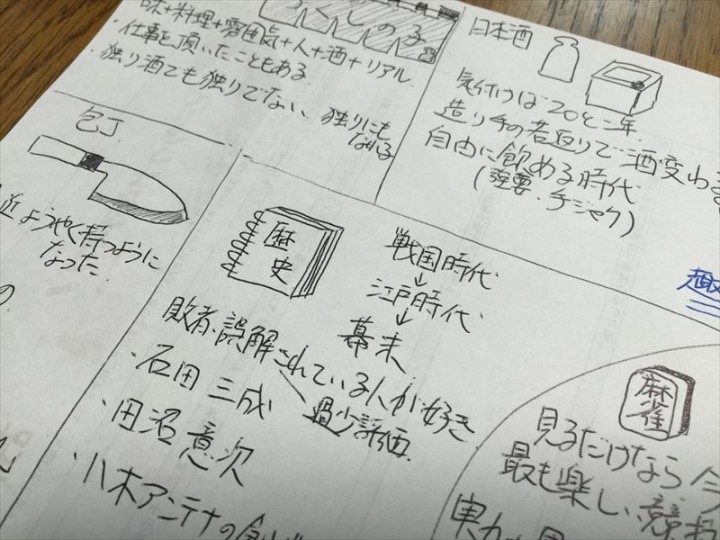 味+料理+雰囲気+人+酒+リアル
・仕事を頂いたこともある
・独り酒でも独りでない 独りにも
なれる
日本酒
気付けば20と二年
造り手の若返りで酒変わる
自由に飲める時代
(強要・手ジャク)
包丁
近ようやく持つように
なった
歴史
戦国時代
↓
江戸時代
↓
幕末
敗者、誤解されている人が好き
過少評価
・石田三成
・田沼意次
・八木アンテナの
趣
麻雀
見るだけなら今
最も楽しい競技
実力